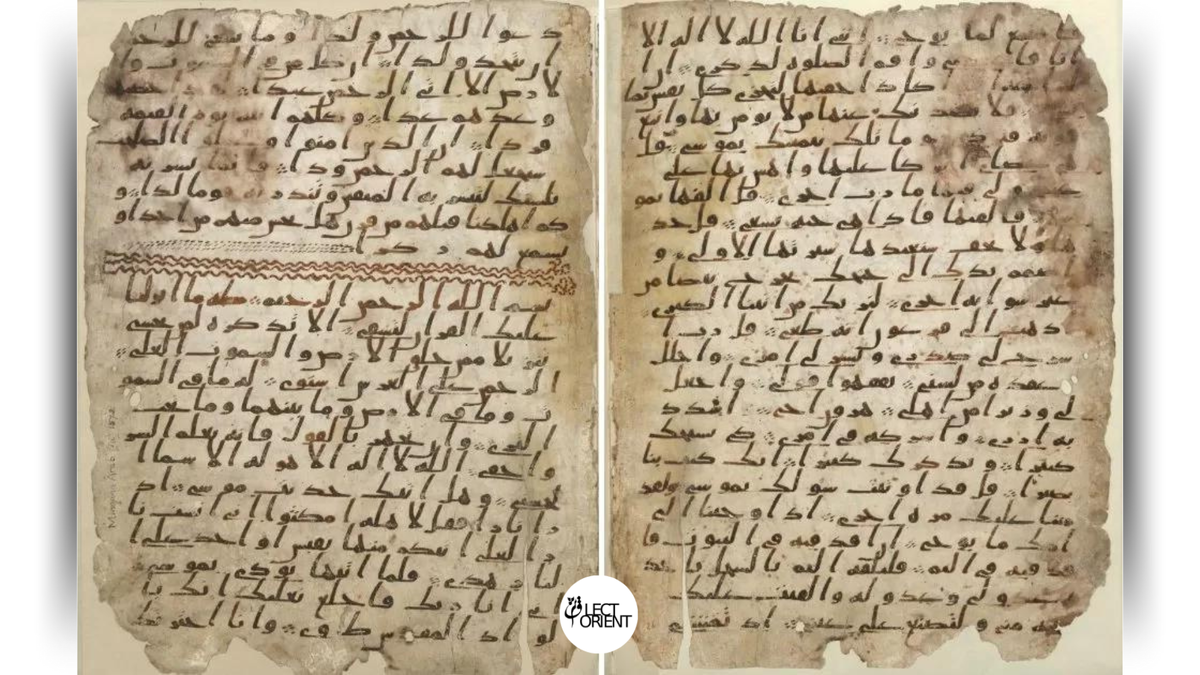 دعوا للرحمن ولدا وما ينبغي للرحمن
ان يتخذ ولدا ان كل من في السموت وا
لارض الا اتي الرحمن عبدا لقد احصيهم
وعدهم عدا وكلهم اتيه يوم القيمه
فردا ان الذين امنوا وعملوا الصلحت
سيجعل لهم الرحمن ودا فانما يسرنه
بلسنك لتبشر به المتقين وتنذر به قوما لدا و
كم اهلكنا قبلهم من قرن هل تحس منهم من احد او
تسمع لهم ركزا
بسم الله الرحمن الرحيم طه ما انزلنا
عليك القران لتشقى الا تذكره لمن يخشى
تنزيلا ممن خلق الارض والسموت العلى
الرحمن على العرش استوى له ما في السمو
ت وما في الارض وما بينهما وما تحت
الثرى وان تجهر بالقول فانه يعلم السر
واخفى الله لا اله الا هو له الاسما ا
لحسنى وهل اتيك حديث موسى اذ
را نارا فقل لاهله امكثوا اني انست نا
را لعلي اتيكم منها بقبس او اجد على ا
لنار هدى فلما اتيها نودي يموسى
اني انا ربك فاخلع نعليك انك با
لواد المقدس طوى وانا اخترتك
فاستمع لما يوحى انني انا الله لا اله الا
انا فاعبدني واقم الصلوه لذكري ان ا
لساعه اتيه اكاد اخفيها لتجزى كل نفس بما
تسعى فلا يصدنك عنها من لا يومن بها واتبع
هويه فتردى وما تلك بيمينك يموسى قل
هي عصاي اتوكا عليها واهش بها على
غنمي ولي فيها مارب اخرى قل القها يمو
سى فالقيها فاذا هي حيه تسعى قل خذ
ها ولا تخف سنعيدها سيرتها الاولى و
اضمم يدك الى جنحك تخرج بيضا من
غير سو ايه اخرى لنريك من ايتنا الكبرى
اذهب الى فرعون انه طغى قل رب ا
شرح لي صدري ويسر لي امري واحلل
عقده من لسني يفقهوا قولي واجعل
لي وزيرا من اهلي هرون اخي اشدد
به ازري واشركه في امري كي نسبحك
كثيرا ونذكرك كثيرا انك كنت بنا
بصيرا قل قد اوتيت سولك يموسى ولقد
مننا عليك مره اخرى اذ اوحينا الى
امك ما يوحى ان اقذفيه في التبوت فا
قذفيه في اليم فليلقه اليم بالسحل ياخذه
عدو لي وعدو له والقيت عليك
محبه مني ولتصنع على عيني اذ تمشي
LECT
ORIENT